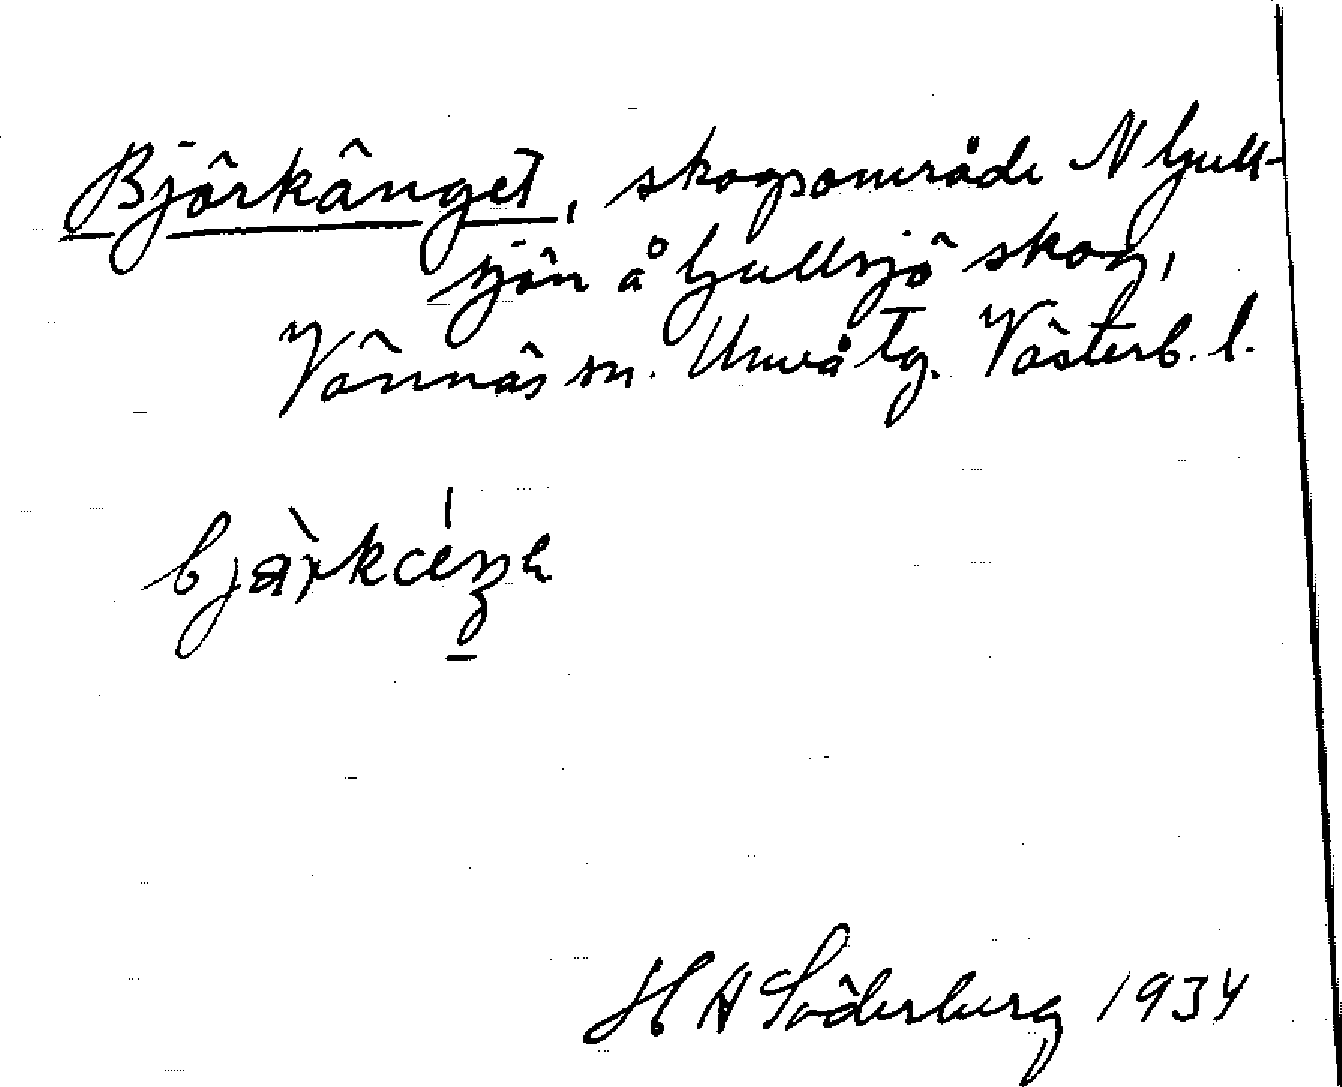 Björkänget, skogsområde N Gull-
sjön å Gullsjö skog,
Vännäs sn. Umeå tg. Västerb. l.
H A Söderberg 1934